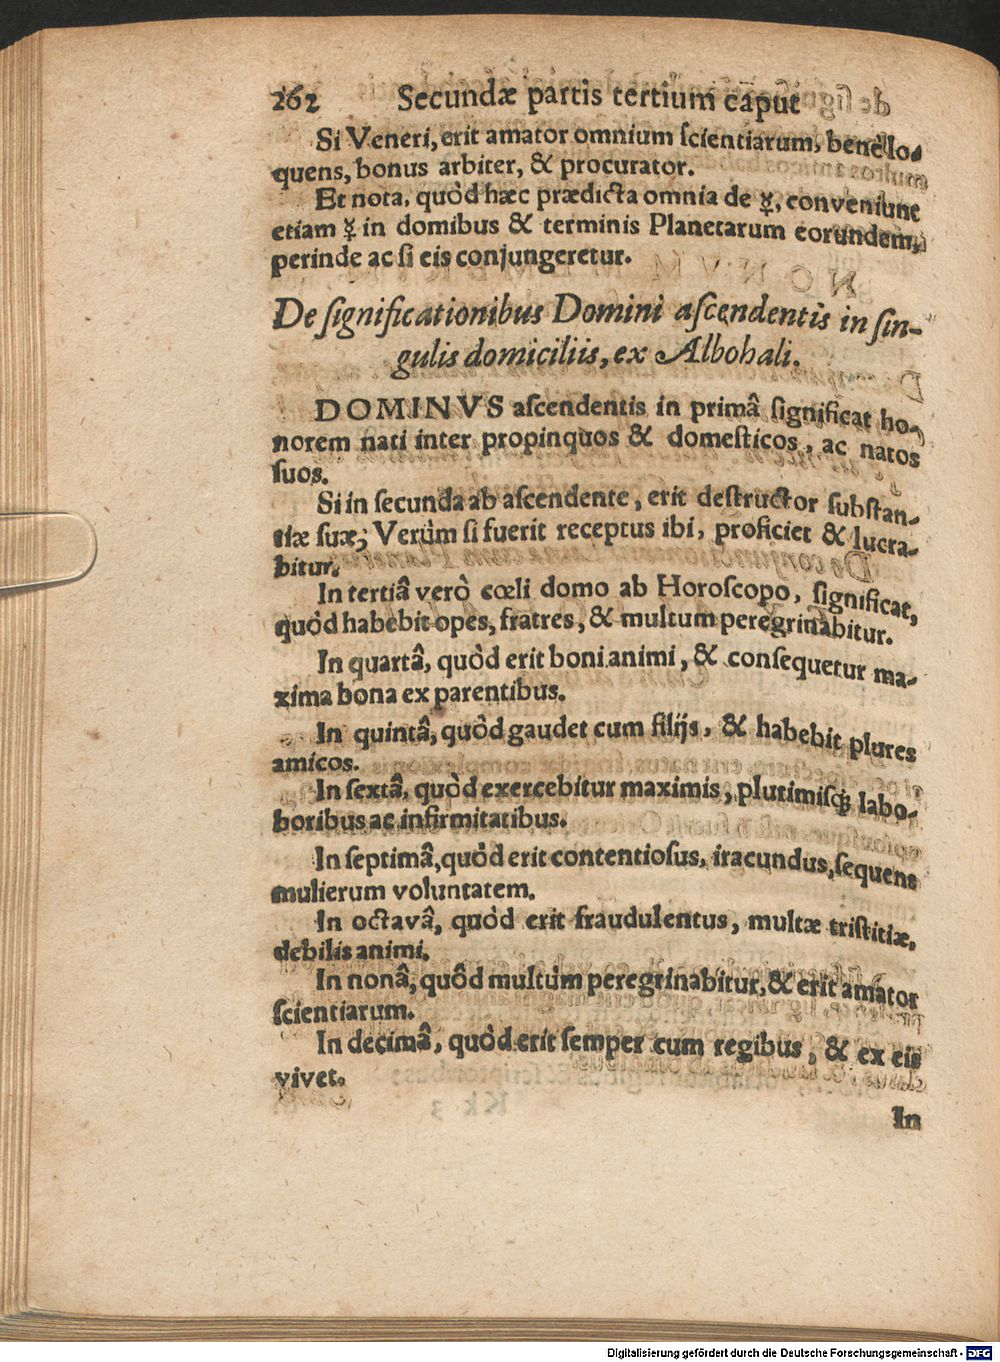 262 Secundæ partis tertium caput
Si Veneri, erit amator omnium ſcientiarum, benè lo-
quens, bonus arbiter, & procurator.
Et nota, quòd hæc prædicta omnia de ☿, conveniunt
etiam ☿ in domibus & terminis Planetarum eorundem,
perinde ac ſi eis conjungeretur.
De ſignificationibus Domini aſcendentis in ſin-
gulis domiciliis, ex Albohali.
DOMINVS aſcendentis in primâ ſignificat ho-
norem nati inter propinquos & domeſticos, ac natos
ſuos.
Si in ſecunda ab aſcendente, erit deſtructor ſubſtan-
tiæ ſuæ; Verùm ſi fuerit receptus ibi, proficiet & lucra-
bitur.
In tertiâ verò cœli domo ab Horoſcopo, ſignificat,
quòd habebit opes, fratres, & multum peregrinabitur.
In quartâ, quòd erit boni animi, & conſequetur ma-
xima bona ex parentibus.
In quintâ, quòd gaudet cum filijs, & habebit plures
amicos.
In ſextâ, quòd exercebitur maximis, plurimiſq́; labo-
boribus ac infirmitatibus.
In ſeptimâ, quòd erit contentioſus, iracundus, ſequens
mulierum voluntatem.
In octavâ, quòd erit fraudulentus, multæ triſtitiæ,
debilis animi.
In nonâ, quôd multùm peregrinabitur, & erit amator
ſcientiarum.
In decimâ, quòd erit ſemper cum regibus, & ex eis
vivet.
In
Digitalisierung gefördert durch die Deutsche Forschungsgemeinschaft - DFG